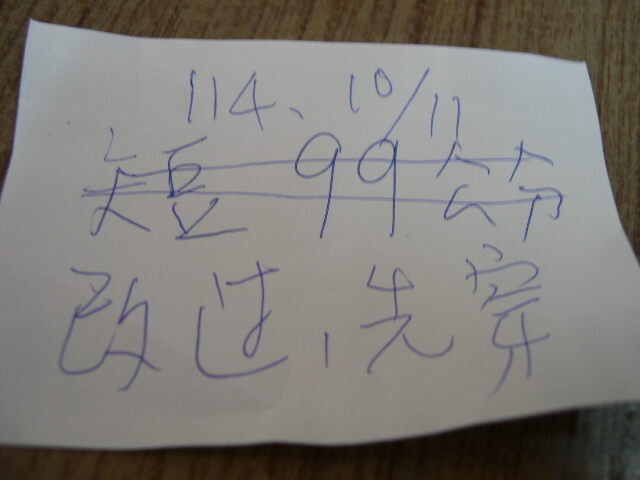 114、10/11
短99公分
改过,先穿